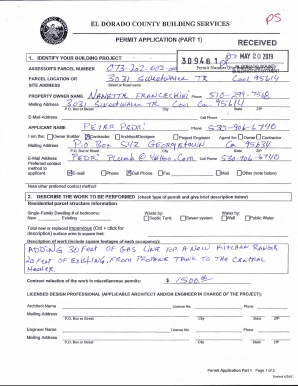 PS
EL DORADO COUNTY BUILDING SERVICES
PERMIT APPLICATION (PART 1)
RECEIVED
MAY 20 2019
309481
1. IDENTIFY YOUR BUILDING PROJECT
ASSESSOR'S PARCEL NUMBER 073-302-007-000 Permit Number
PARCEL LOCATION OR 3031 Sweetwater TR Cool 95614
SITE ADDRESS Street or Road name
PROPERTY OWNER NAME Nanette Franceschini Phone 510-299-7568
Mailing Address 3031 Sweetwater TR Cool Ca. 95614
P.O. Box or Street City State ZIP
E-Mail Address Cell Phone
APPLICANT NAME Peter Pedri Phone 530-906-6740
I am the: Owner Builder Contractor Architect/Designer Project Engineer Agent for Owner Contractor
Mailing Address P.O. Box 542 Georgetown Ca 95634
P.O. Box or Street City State ZIP
E-Mail Address Pedri Plumb@Yahoo.Com Cell Phone 530-906-6740
Preferred contact
method to
applicant E-mail Phone Cell Phone Fax Mail Other (note below)
Note other preferred contact method
2. DESCRIBE THE WORK TO BE PERFORMED (check type of permit and give brief description below)
Residential parcel structures information
Single-Family Dwelling # of bedrooms: Waste by: Water by:
New Existing Septic Tank Sewer system Well Public Water
Total new or replaced impervious (Ctrl + click for
description) surface area in square feet:
Description of work (include square footages of each occupancy):
ADDING 30 FEET OF GAS LINE FOR A NEW KITCHEN RANGE
20 FEET OF EXISTING, FROM PROPANE TANK TO THE CENTRAL
HEATER.
Contract valuation of the work in miscellaneous permits: $ 1500.00
LICENSED DESIGN PROFESSIONAL (APPLICABLE ARCHITECT AND/OR ENGINEER IN CHARGE OF THE PROJECT):
Architect Name License No. Phone
Mailing Address
P.O. Box or Street City State ZIP
Engineer Name License No. Phone
Mailing Address
P.O. Box or Street City State ZIP
Permit Application Part 1 Page 1 of 2